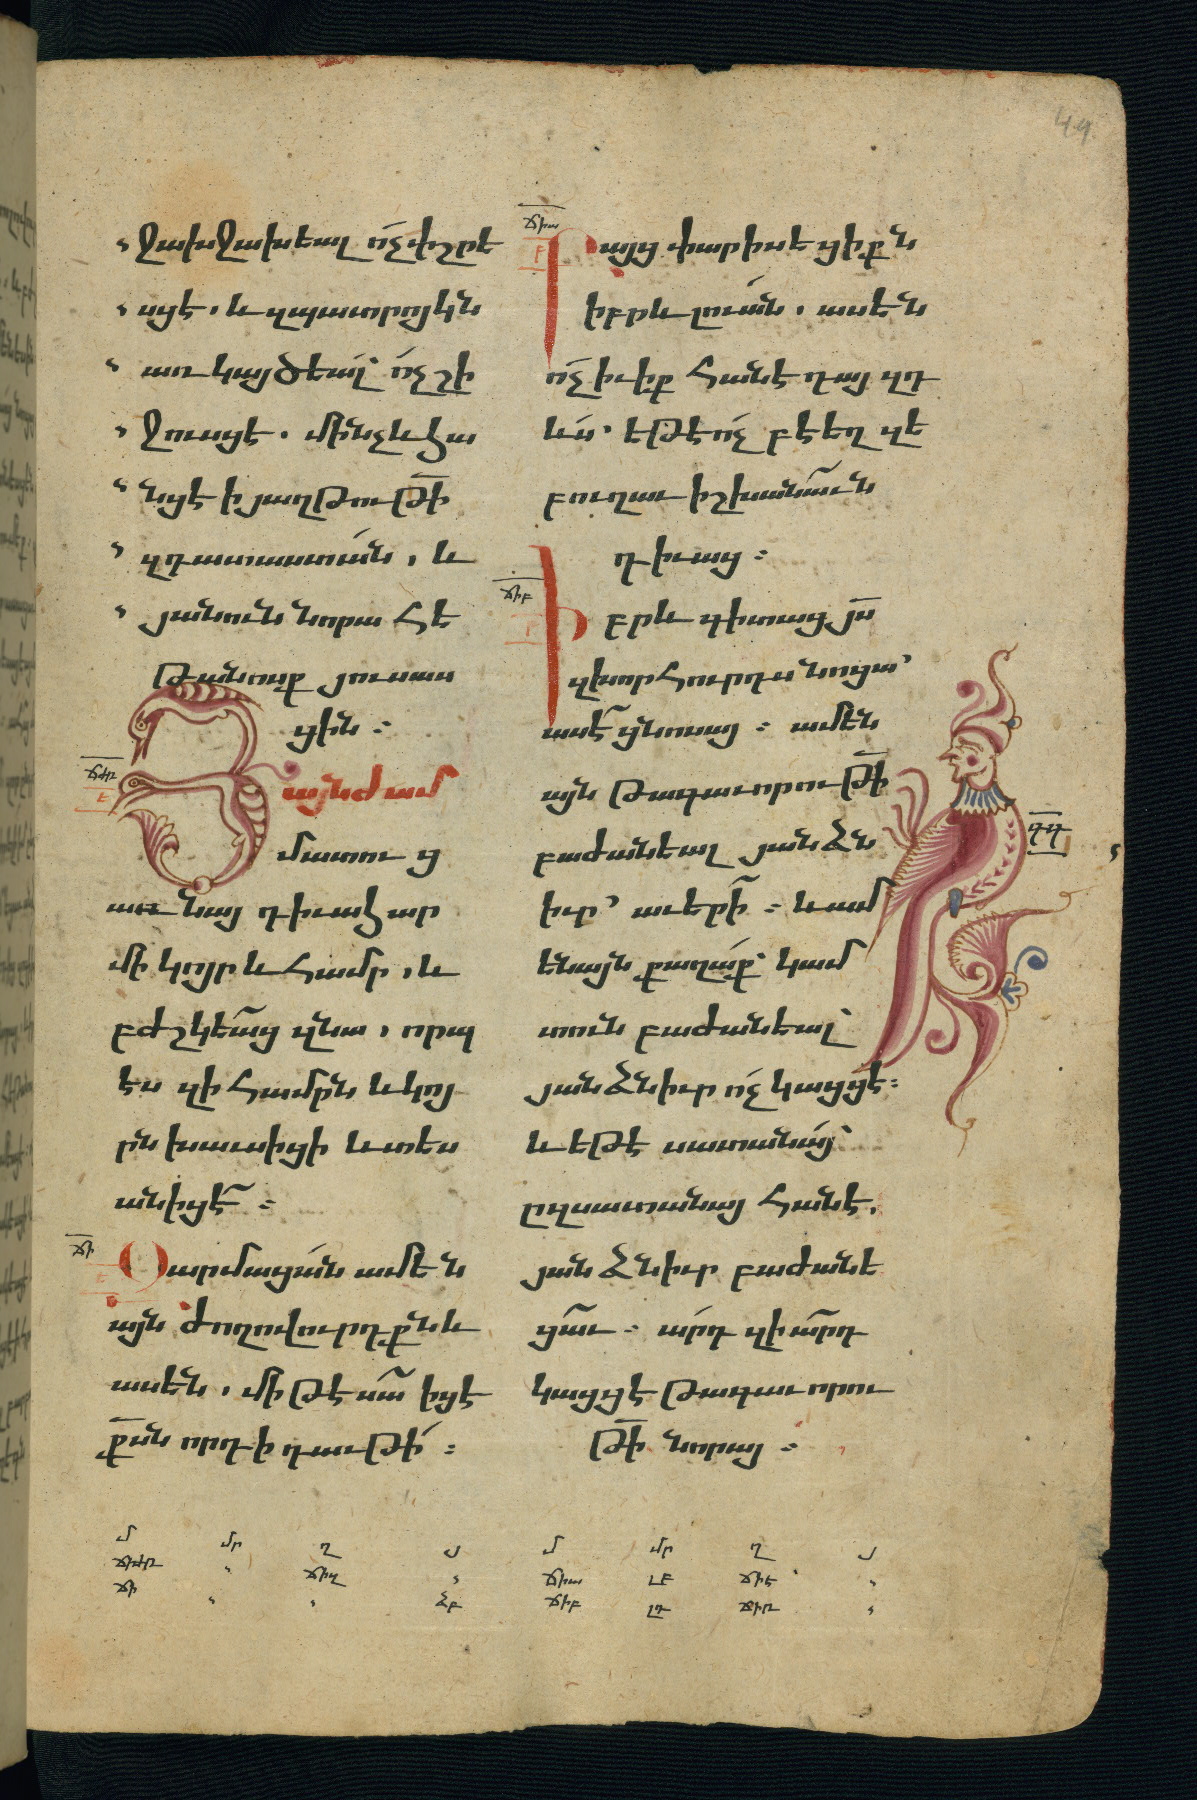 49
ջախջախեալ ո՛չ փշրե
սցէ. և զպատրոյկն
առկայծեալ՝ ո՛չ շի
ջուսցէ. մինչև հա
նցէ ի յաղթութի̄
զդատաստան. և
յանուն նորա հե
թանոսք յուսաս
ցին։
ՃԺԹ
Յայնժամ
մատուց
առ նայ դիւահար
մի կոյր և համր. և
բժշկեաց զնա. որպ
էս զի համրն և կոյ
րն խաւսիցի և տես
անիցէ։
ՃԻ
Զարմացան ամեն
այն ժողովուրդքն և
ասեն. մի թէ սա՞ իցէ
ք̄սն որդի դաւթի։
ՃԻԱ
Բ
Բայց փարիսեցիքն
իբրև լուան. ասեն
ո՛չ իւիք հանէ դայ զդ
ևս՝ եթէ ո՛չ բէեղ զե
բուղաւ իշխանաւն
դիւաց։
ՃԻԲ
Իբրև գիտաց յս̄
զխորհուրդս նոցա՝
ասէ ցնոսայ։ ամեն
այն թագաւորութի̄
բաժանեալ յանձն
իւր՝ աւերի։ և ամ
ենայն քաղաք՝ կամ
տուն բաժանեալ՝
յանձնիւր ո՛չ կացցէ։
և եթէ սատանայ՝
ըզսատանայ հանէ.
յանձնիւր բաժանե
ցաւ։ արդ զիա՞րդ
կացցէ թագաւորու
թի̄ նորայ։
ԳԴ
Մ Մր Ղ Յ Մ Մր Ղ Յ
ՃԺԹ ՃԻԱ ԼԲ ՃԻԷ
ՃԻ ՁԲ ՃԻԲ ԼԴ ՃԻԹ